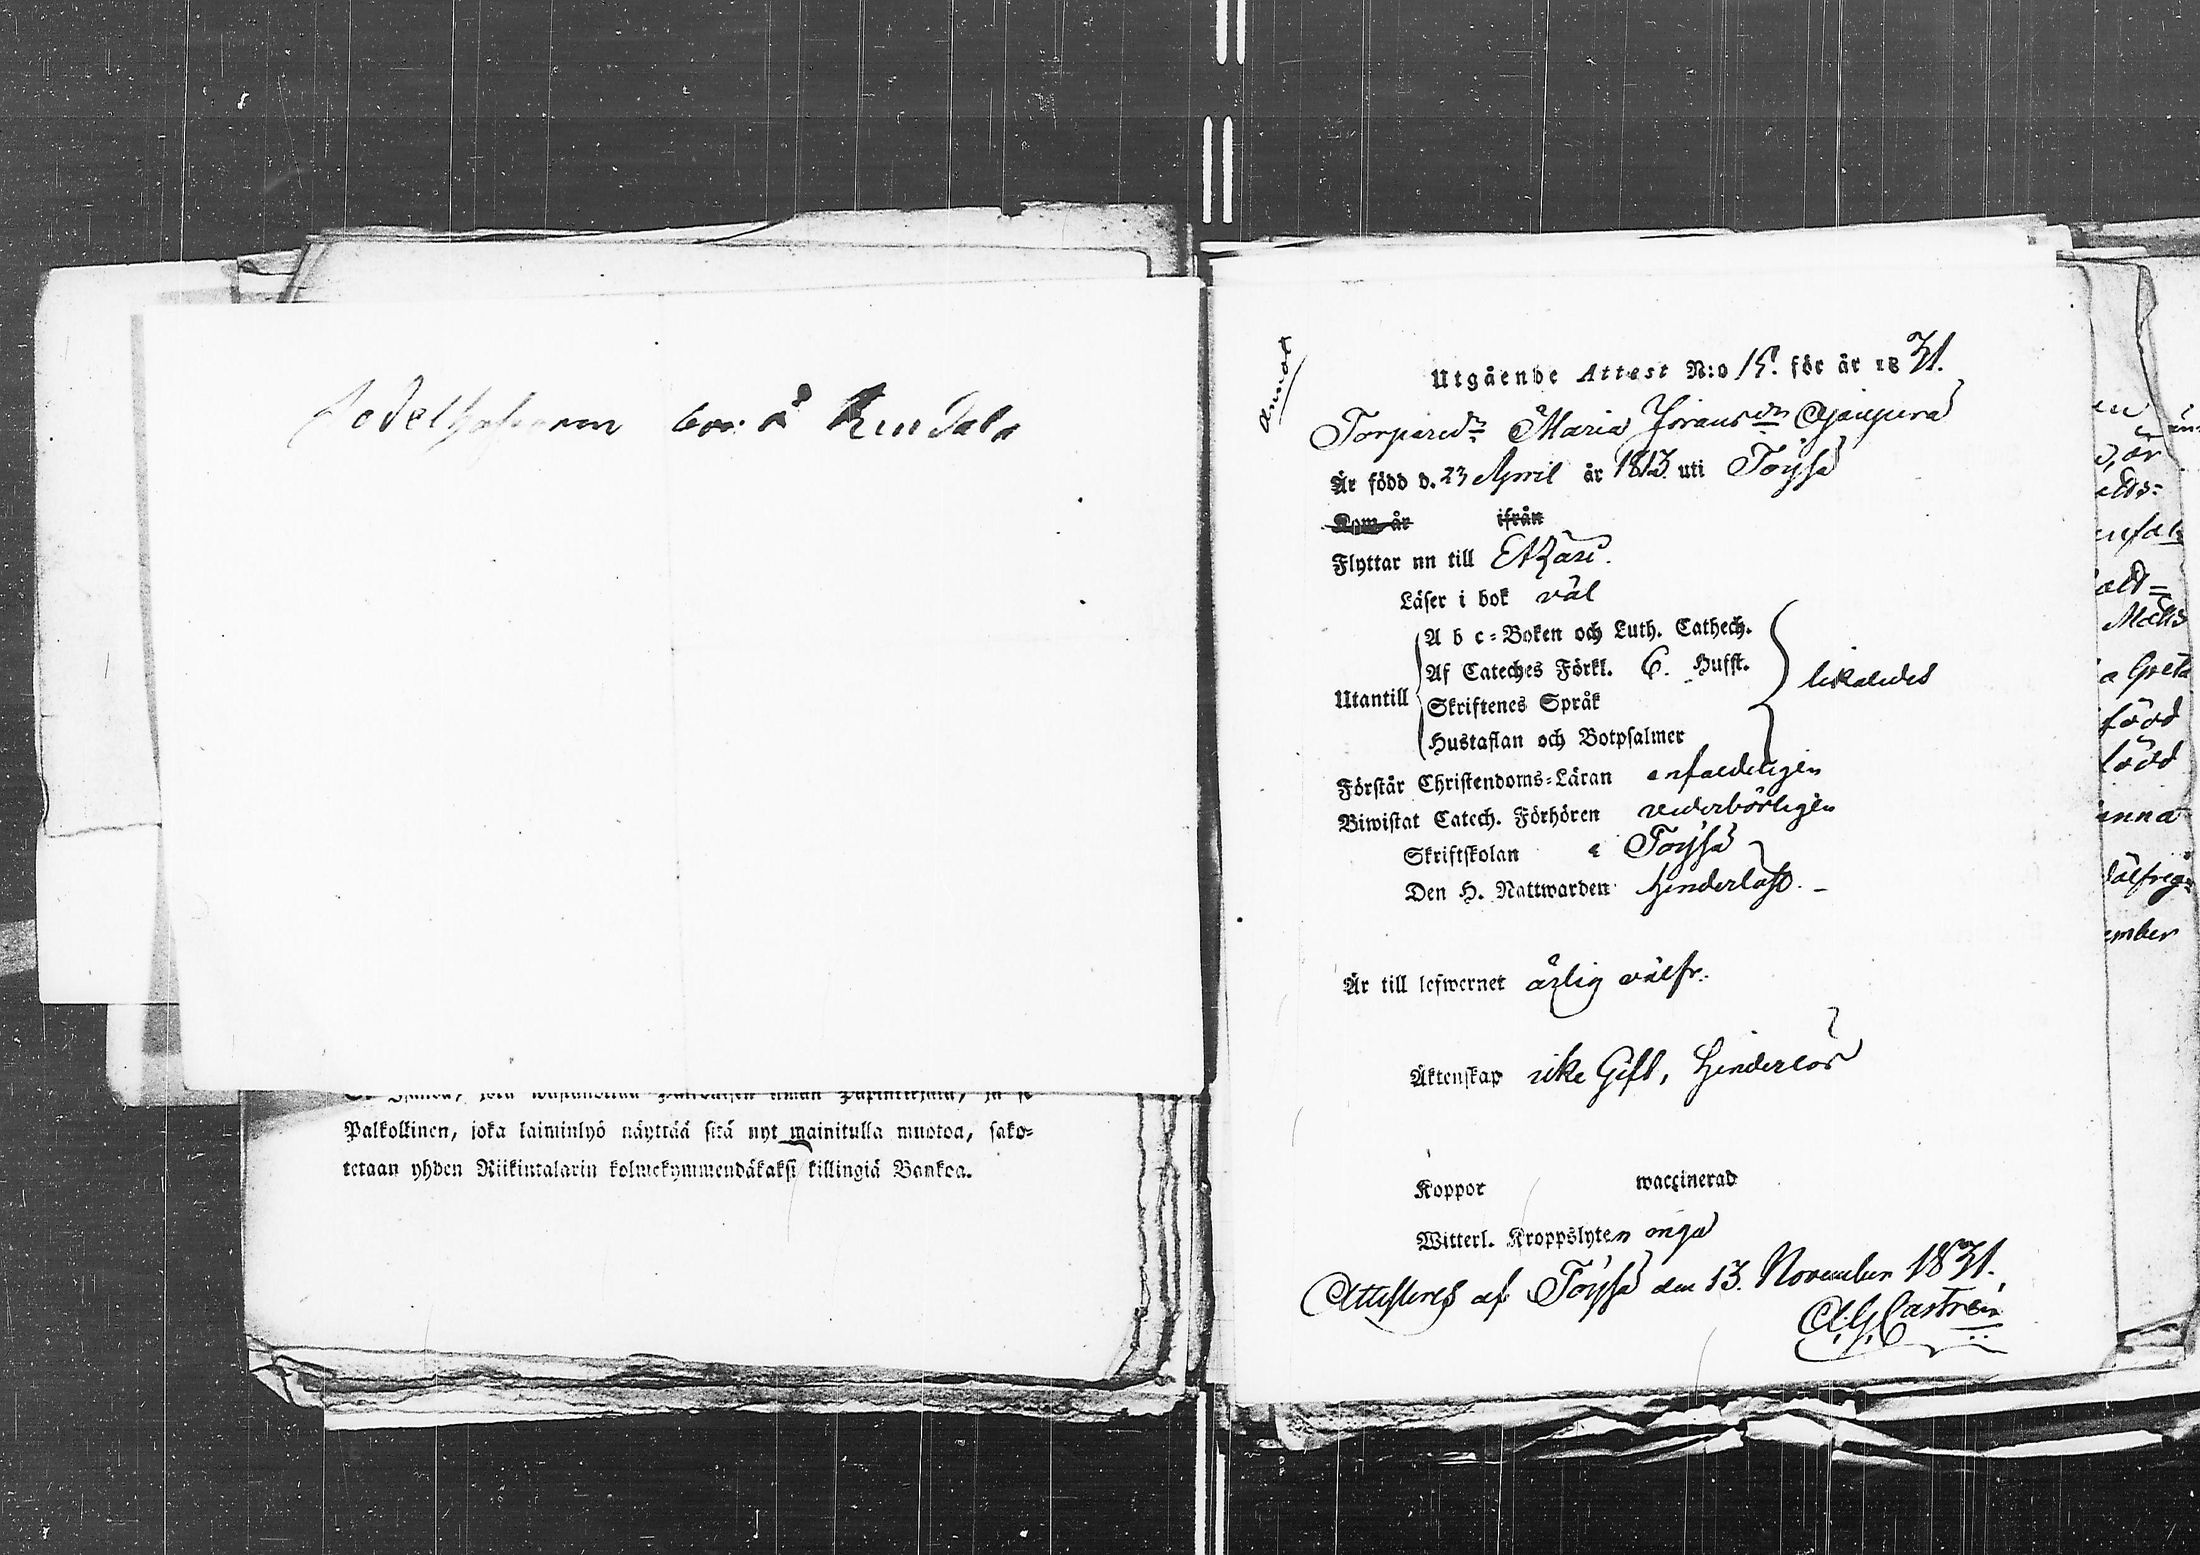 Palkollinen, joka laiminlyö näyttää sitä nyt mainitulla muotoa, sako-
tetaan yhden Riikintalarin kolmekymmendäkaksi killingiä Bankoa.
Utgående Attest N:o 15. för år 1831.
Torpared:r Maria Jöransd:r
Är född d. 23 April år 1813 uti Töysä
Kom år ifrån
Flyttar nn till Etzäri.
Läser i bok väl
Utantill
A b c-Boken och Luth. Cathech.
Af Cateches Förkl. 6. Hufst.
Skriftenes Språk
Hustaflan och Botpsalmer
likaledes
Förstår Christendoms-Läran enfaldeligen
Biwistat Catech. Förhören vederbörligen
Skriftskolan i Töysä
Den H. Nattwarden hinderlöst. -
Är till lefwernet ärlig välfr:
Äktenskap icke Gift, hinderlös
Koppor waccinerad
Witterl. Kroppslyten inga
Attesteres af Töysä den 13. November 1831.
A.G. Castrén
en
född
född
Matts
a Greta
inna
ember